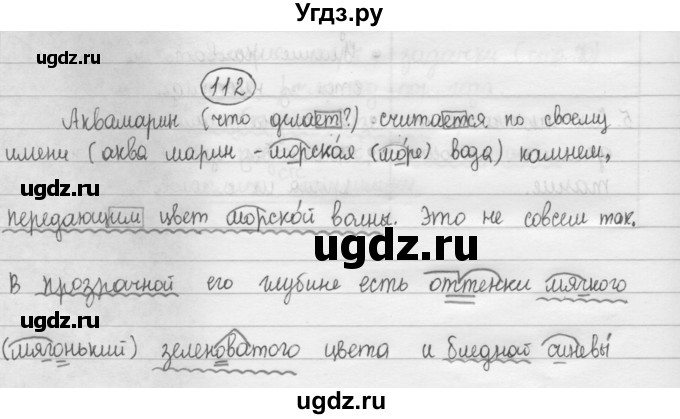 Угдз.ру
ugdz.ru
112
ugdz.ru
Аквамарин (что делает?) считается по своему
имени (аква марин - морская (море) вода) камнем,
ugdz.ru
передающим цвет морской волны. Это не совсем так.
ugdz.ru
ugdz.ru
В прозрачной его глубине есть оттенки мягкого
ugdz.ru
(мягонький) зеленоватого цвета и бледной синевы
ugdz.ru